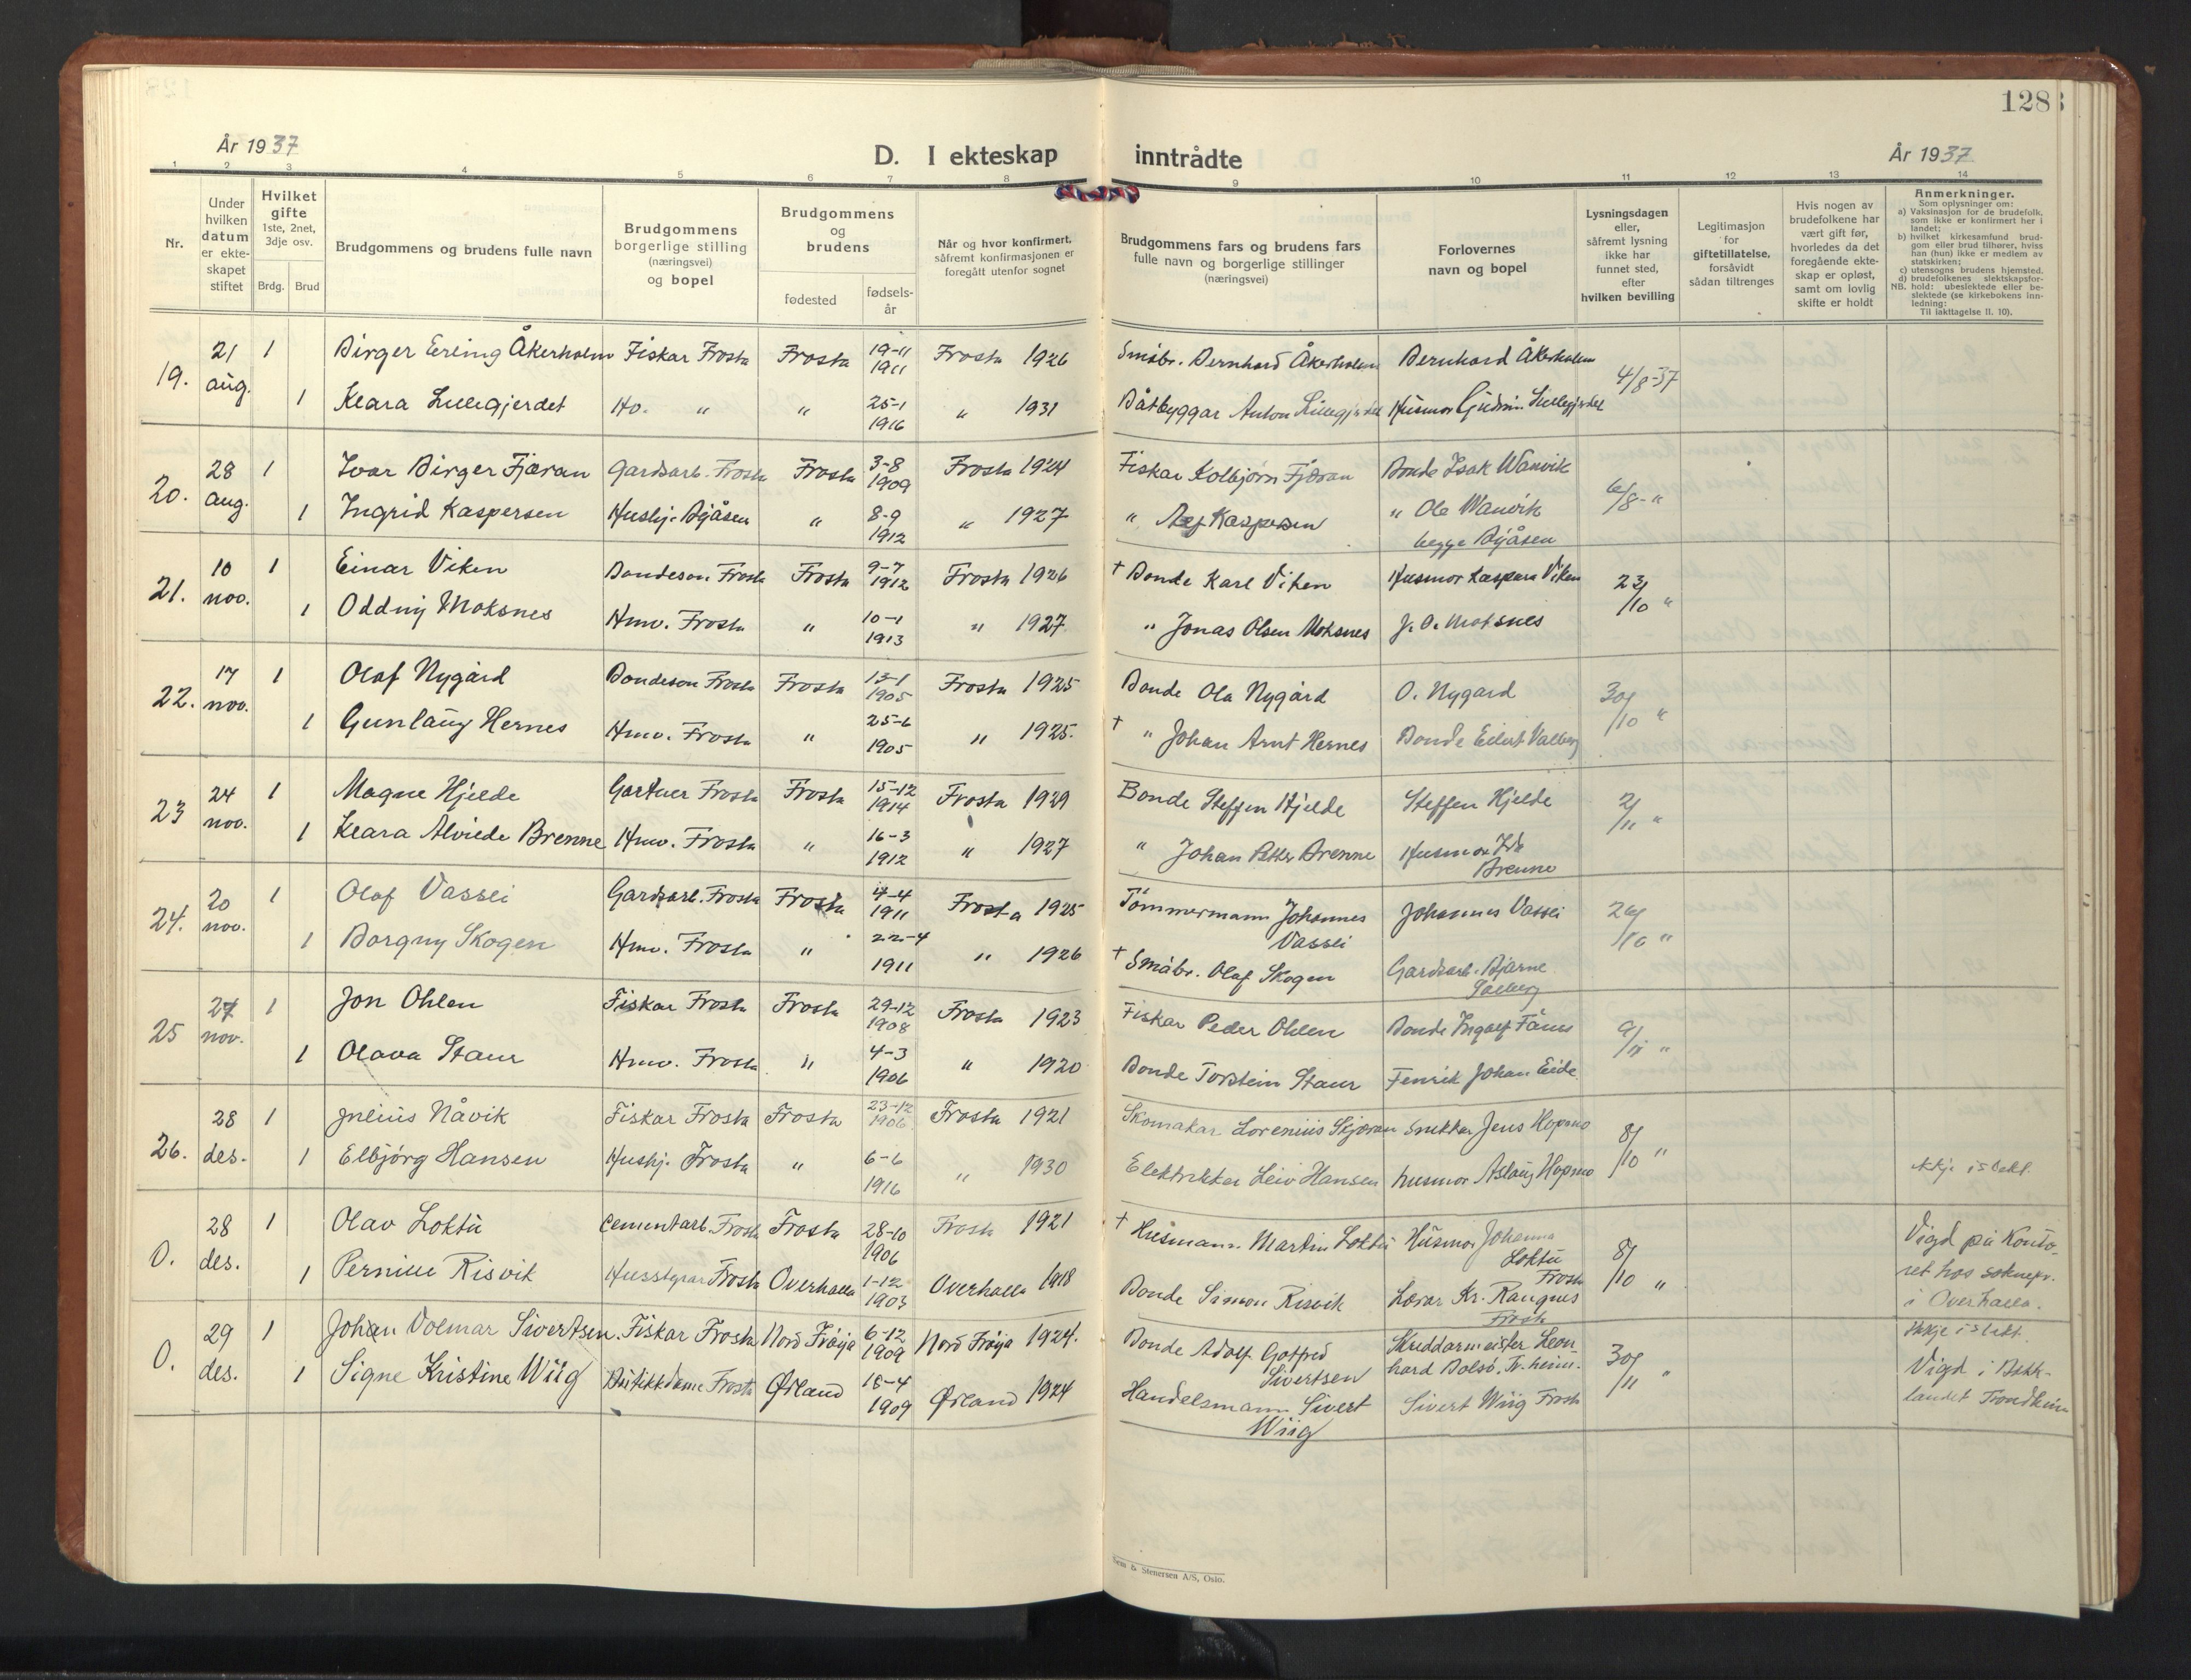 128
År 1937
D. I ekteskap inntrådte
År 1937
1 2 3 4 5 6 7 8 9 10 11 12 13 14
Nr.
Under hvilken datum er ekte- skapet stiftet
Hvilket gifte 1ste, 2net, 3dje osv.
Brdg. Brud
Brudgommens og brudens fulle navn
Brudgommens borgerlige stilling (næringsvei) og bopel
Brudgommens og brudens
fødested
fødsels- år
Når og hvor konfirmert, såfremt konfirmasjonen er foregått utenfor sognet
Brudgommens fars og brudens fars fulle navn og borgerlige stillinger (næringsvei)
Forlovernes navn og bopel
Lysningsdagen eller, såfremt lysning ikke har funnet sted, efter hvilken bevilling
Legitimasjon for giftetillatelse, forsåvidt sådan tiltrenges
Hvis nogen av brudefolkene har vært gift før, hvorledes da det foregående ekte- skap er opløst, samt om lovlig skifte er holdt
Anmerkninger.
Som oplysninger om:
a) Vaksinasjon for de brudefolk, som ikke er konfirmert her i landet;
b) hvilket kirkesamfund brud- gom eller brud tilhører, hviss han (hun) ikke er medlem av statskirken;
c) utensogns brudens hjemsted.
d) brudefolkenes slektskapsfor-
NB. hold: ubeslektede eller be- slektede (se kirkebokens inn- ledning:
Til iakttagelse II. 10).
19. 21 aug. 1 Birger Erling Åkerholm Fiskar Frosta Frosta 19-11 1911 Frosta 1926 Småbr. Bernhard Åkerholm Bernhard Åkerholm 4/8-37
1 Klara Lillegjerdet Ho. " " 25-1 1916 " 1931 Båtbyggar Anton Lillegjerdet Husmor Gudrun Lillegjerdet
20. 28 aug. 1 Ivar Birger Fjæran Gardsarb. Frosta Frosta 3-8 1909 Frosta 1924 Fiskar Kolbjørn Fjæran Bonde Isak Wanvik 6/8-"
1 Ingrid Kaspersen Hushj. Åsen " 8-9 1912 " 1927 " Kaspersen " Ole Wanvik
begge Åsen
21. 10 nov. 1 Einar Viken Bondeson Frosta Frosta 9-7 1912 Frosta 1926 † Bonde Karl Viken Husmor Kaspara Viken 23/10 "
1 Oddny Moksnes Hmv. Frosta " 10-1 1913 " 1927 " Jonas Olsen Moksnes J. O. Moksnes
22. 17 nov. 1 Olaf Nygård Bondeson Frosta Frosta 1905 Frosta 1925 Bonde Ola Nygård O. Nygård 30/10 "
1 Gunlaug Hernes Hmv. Frosta " 25-6 1905 " 1925. † " Johan Arnt Hernes Bonde Eilert Valberg
23 24 nov. 1 Magne Hjelde Gartner Frosta Frosta 15-12 1914 Frosta 1929 Bonde Steffen Hjelde Steffen Hjelde 2/11 "
1 Klara Alvilde Brenne Hmv. Frosta " 16-3 1912 " 1927 " Johan Petter Brenne Husmor Ida Brenne
24. 20 nov. 1 Olaf Vassli Gardsarb. Frosta Frosta 4-4 1911 Frosta 1925 Tømmermann Johannes Vassli Johannes Vassli 26/10 "
1 Borgny Skogen Hmv. Frosta " 22-4 1911 " 1926 † Småbr. Olaf Skogen Gardsarb. Bjarne Solberg
25 27 nov. 1 Jon Ohlen Fiskar Frosta Frosta 29-12 1908 Frosta 1923 Fiskar Peder Ohlen Bonde Ingolf Fånes 9/11 "
1 Olava Staur Hmv. Frosta " 4-3 1906 " 1920 Bonde Torstein Staur Fenrik Johan Eide
26. 28 des. 1 Julius Nåvik Fiskar Frosta Frosta 23-12 1906 Frosta 1921 Skomakar Lorenius Skjæran Snikkar Jens Hopmo 8/10 "
1 Elbjørg Hansen Hushj. Frosta " 6-6 1916 " 1930 Elektrikkar Leiv Hansen husmor Aslaug Hopmo ikkje i slekt.
0. 28 des. 1 Olav Loktu Cementarb. Frosta Frosta 28-10 1906 Frosta 1921 † Husmann. Martin Loktu Husmor Johanna Loktu Frosta 8/10 " Vigd på Konto-
1 Pernille Risvik Husstyrar Frosta Overhalla 1-12 1903 Overhalla 1918 Bonde Simon Risvik Lærar Kr. Raugnes Frosta ret hos soknepr. i Overhalla.
0. 29 des. 1 Johan Volmar Sivertsen. Fiskar Frosta Nord Frøya 6-12 1909 Nord Frøya 1924. Bonde Adolf Gotfred Sivertsen Skreddarmeister Leon- hard Bolsø. Tr.heim. 30/11 " Ikkje i slekt.
1 Signe Kristine Wiig Butikkdame Frosta Ørland 18-4 1909 Ørland 1924 Handelsmann Sivert Wiig Sivert Wiig Frosta Vigd i Bakk- landet Trondheim
& Stenersen A/S, Oslo.